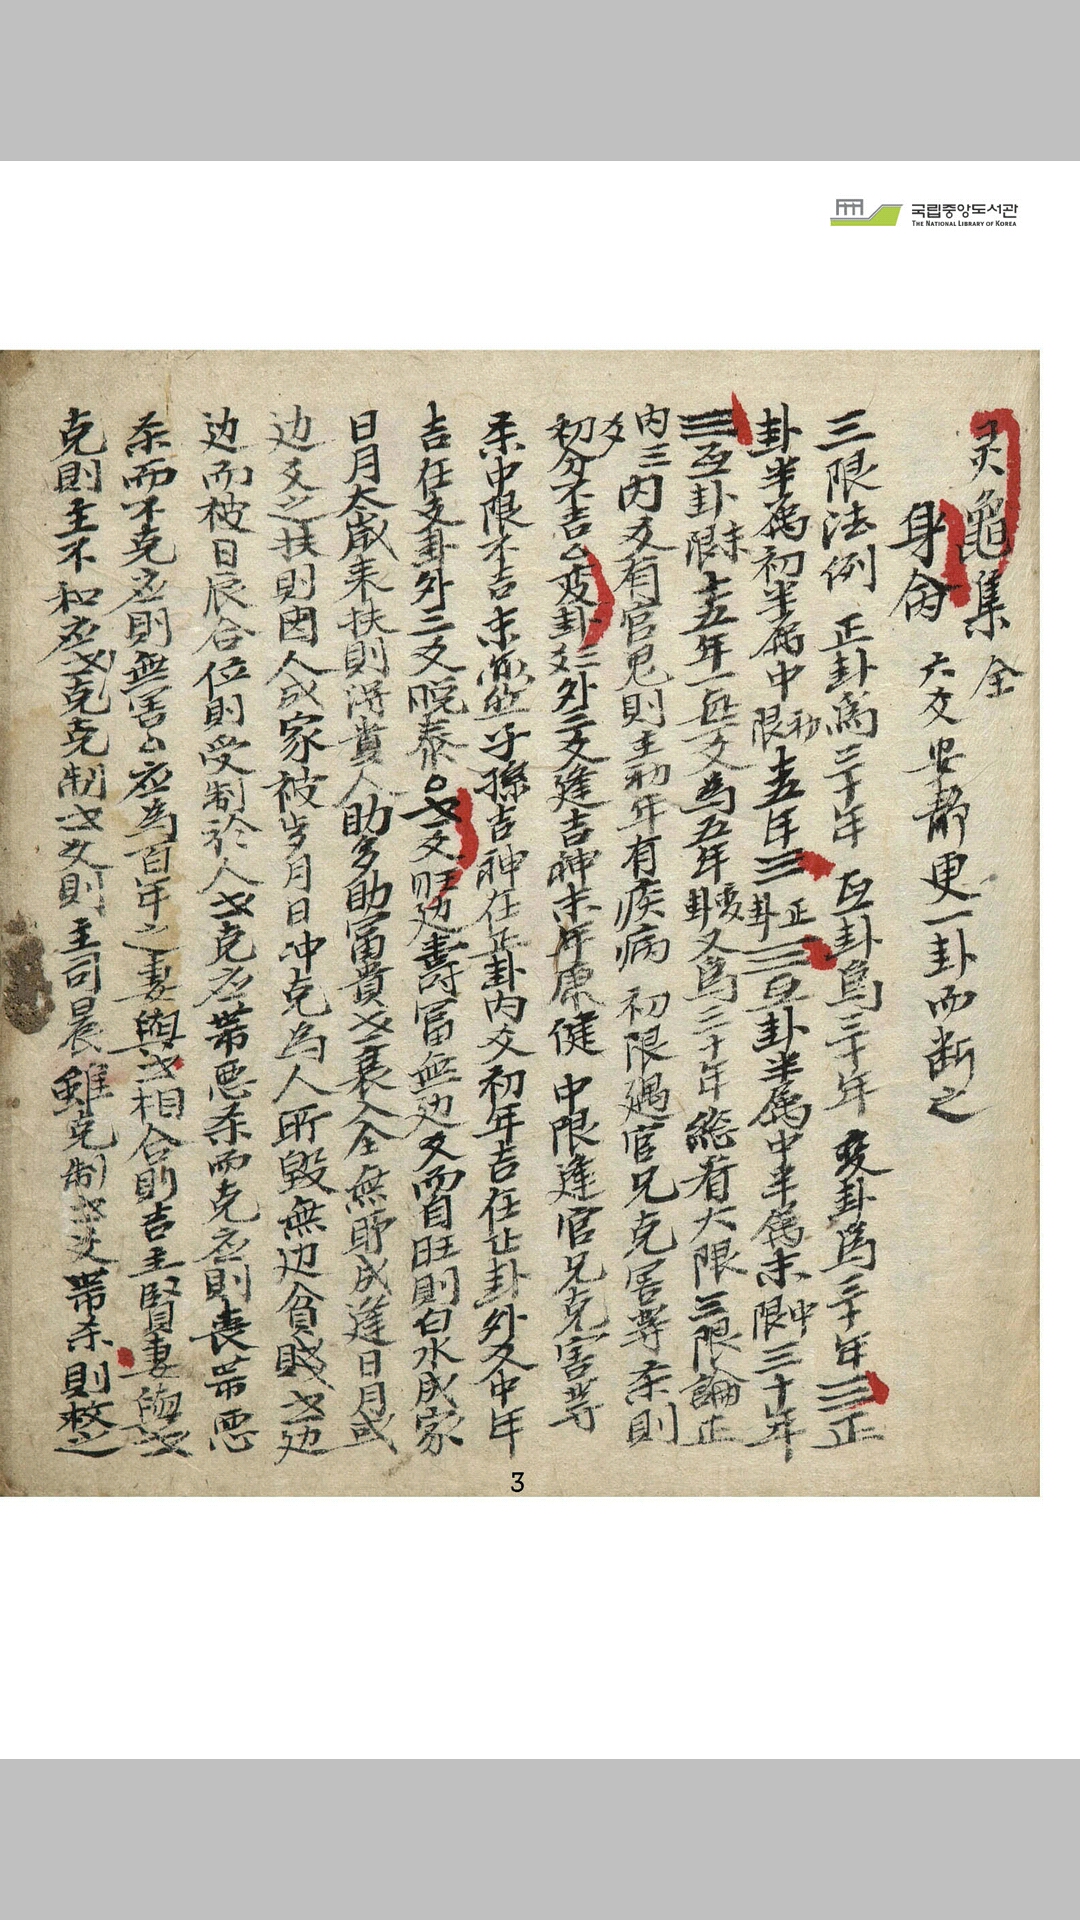 국립중앙도서관
THE NATIONAL LIBRARY OF KOREA
灵龜集 全
身命 六爻安静更一卦而断之
三限法例 正卦爲三十年 互卦爲三十年 变卦爲三十年 三正
卦半属初半属中限初十五年三正卦三互卦半属中半属末限中三十年
三互卦限末十五年一爻爲五年卦变又爲三十年 総看大限三限論正
内三内爻有官鬼則主初年有疾病 初限遇官兄克害等杀則
初分不吉 变卦外三爻逢吉神末年康健 中限逢官兄克害等
杀中限不吉 末 子孫吉神在正卦内爻初年吉在正卦外爻中年
吉在支卦外三爻脱泰 世爻旺边壽富無边爻而自旺則白水成家
日月太歲来扶則得貴人助多助富貴世衰全無所成逢日月或
边爻之扶則因人成家被岁月日冲克為人所毀無边貧賎世边
边而被日辰合位則受制於人世克应帯恶杀而克应則丧 帯恶
杀而不克应則無害 应為百年之妻與世相合則吉主賢妻與世
克則主不和应世克克制世爻則主司晨 雖克制世爻帯杀則救之
3